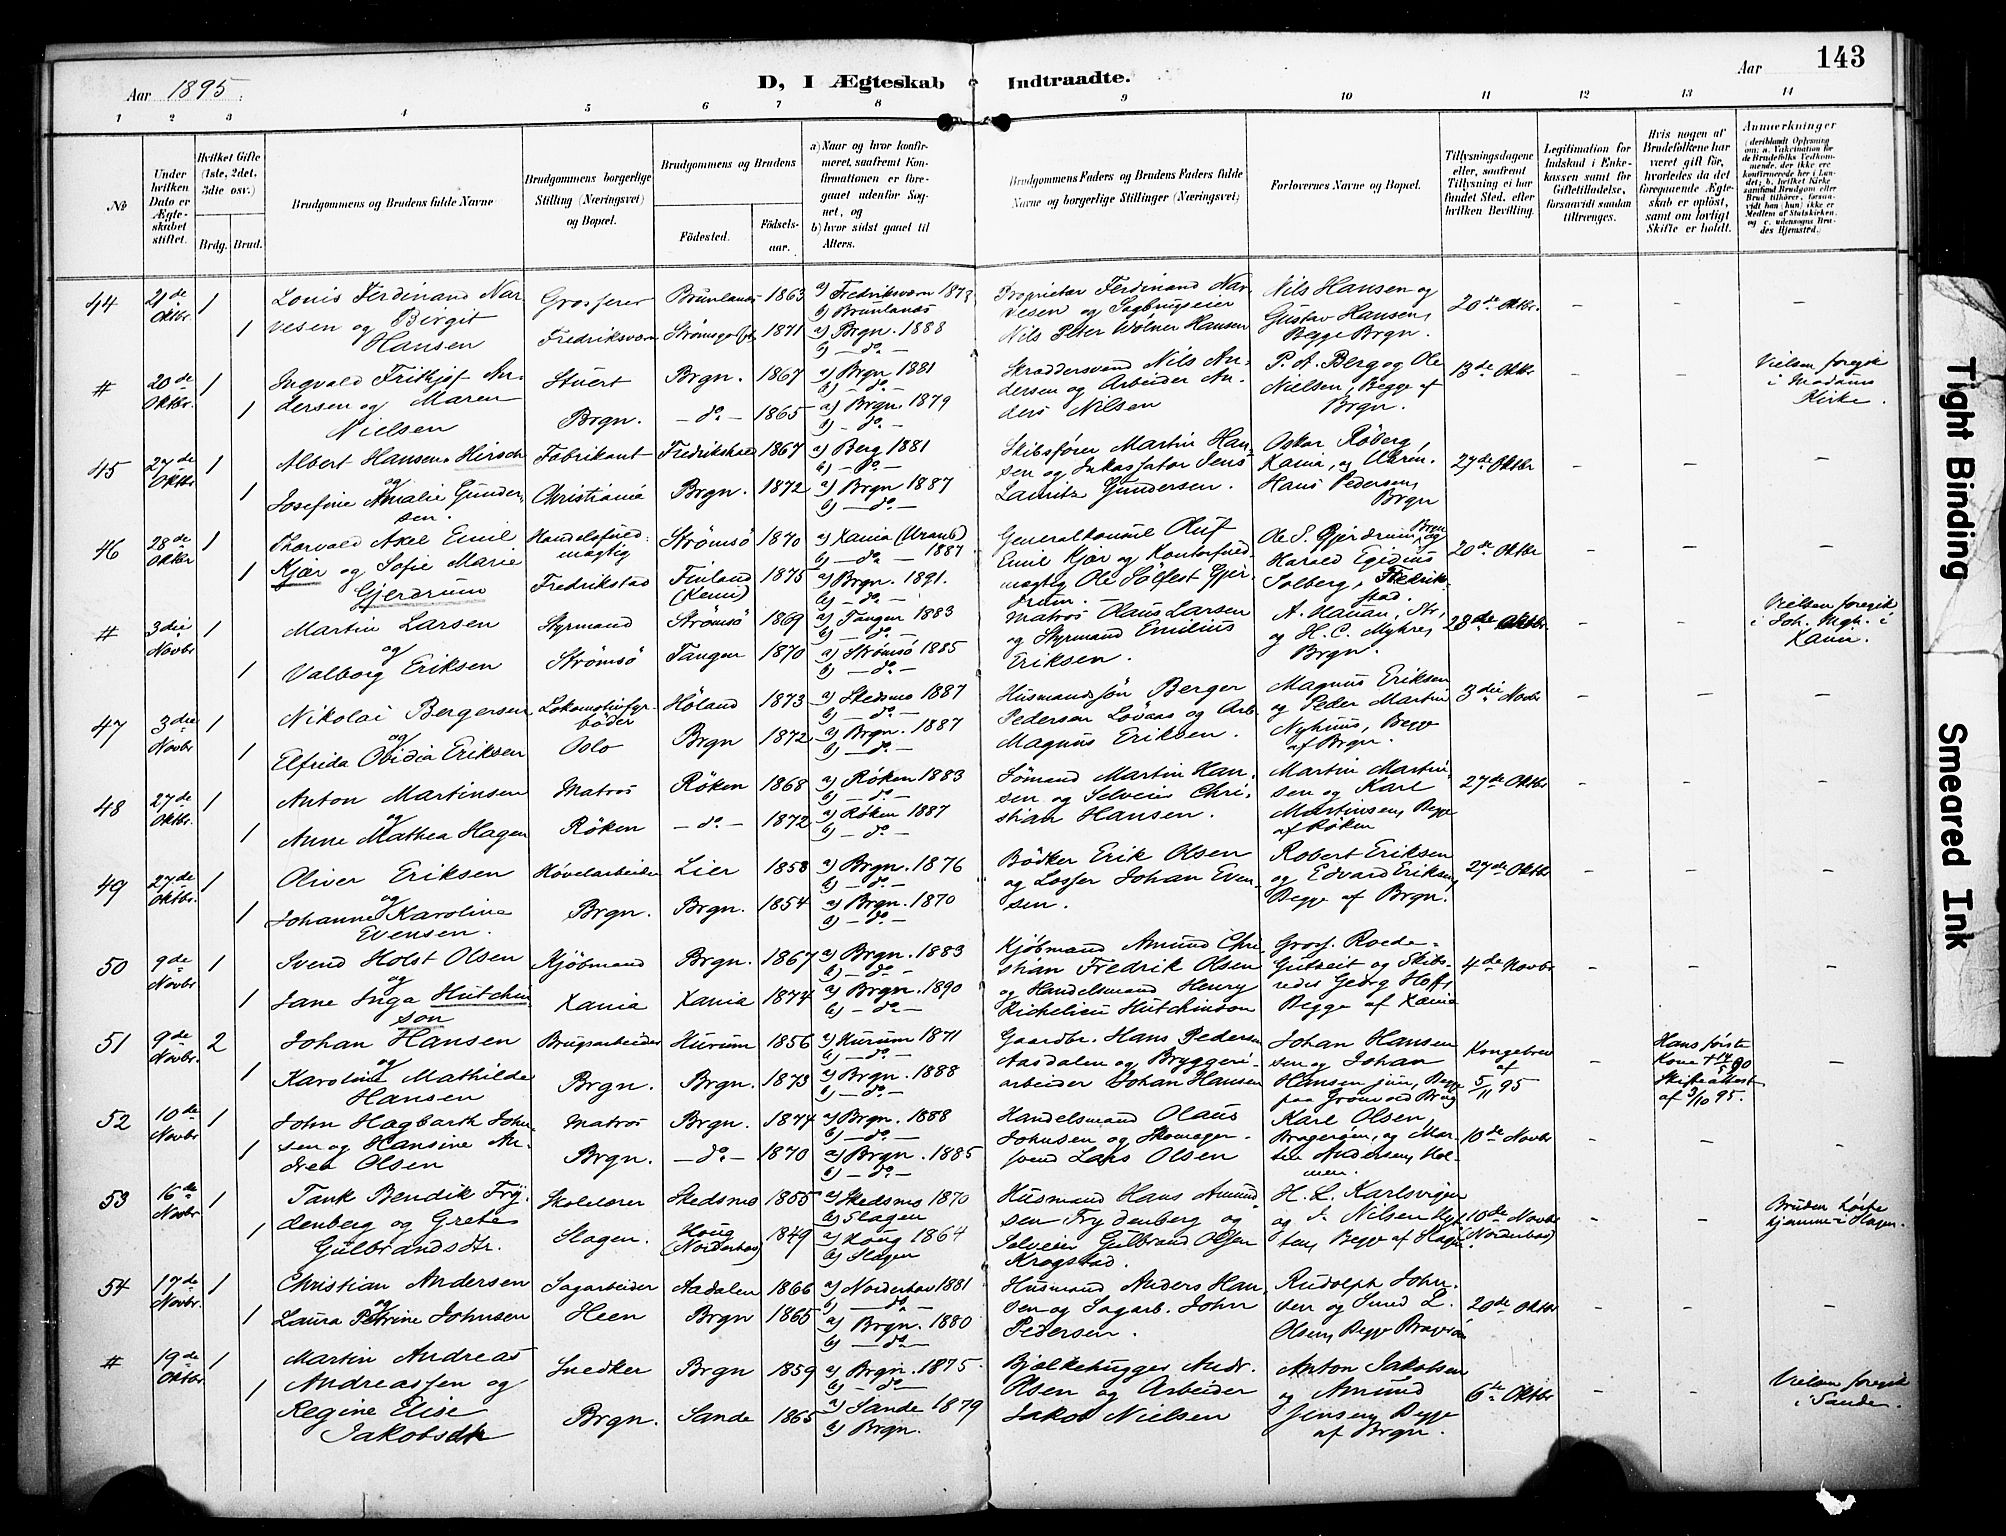 Aar 1895.
D, I Ægteskab Indtraadte.
Aar
143
1 2 3 4 5 6 7 8 9 10 11 12 13 14
No
Under hvilken Dato er Ægteskabet stiftet.
Hvilket Gifte (1ste, 2det, 3die osv.)
Brdg. Brud.
Brudgommens og Brudens fulde Navne
Brudgommens borgerlige Stilling (Næringsvei) og Bopæl.
Brudgommens og Brudens
Fødested.
Fødselsaar.
a) Naar og hvor konfirmeret, saafremt Konfirmationen er foregaaet udenfor Sognet, og
b) hvor sidst gaaet til Alters.
Brudgommens Faders og Brudens Faders fulde Navne og borgerlige Stillinger (Næringsvei)
Forlovernes Navne og Bopæl.
Tillysningsdagene eller, saafremt Tillysning ei har fundet Sted, efter hvilken Bevilling.
Legitimation for Indskud i Enkekassen samt for Giftetilladelse, forsaavidt saadan tiltrænges.
Hvis nogen af Brudefolkene har været gift før, hvorledes da det foregaaende Ægteskab er opløst, samt om lovligt Skifte er holdt.
Anmærkninger
(deriblandt Oplysning om: a. Vakcination for de Brudefolks Vedkommende, der ikke ere konfirmerede her i Landet; b. hvilket Kirkesamfund Brudgom eller Brud tilhører, forsaavidt han (hun) ikke er Medlem af Statskirken, og c. udensogns Brudes Hjemsted.)
44 21de Oktbr. 1 1
Louis Ferdinand Narvesen og Birgit Hansen
Grosserer Fredriksværn
Brunlanæs 1863 Strömsgodset 1871
a) Fredriksværn 1873 b) Brunlanæs
a) Brgn. 1888 b) — do —
Proprietær Ferdinand Narvesen og Sagbrugseier Nils Peter Wölner Hansen
Nils Hansen og Gustav Hansen, Begge Brgn.
20de Oktbr. – – –
# 20de Oktbr. 1 1
Ingvald Frithjof Andersen og Maren Nielsen
Stuert Brgn.
Brgn. 1867 — do — 1865
a) Brgn 1881 b) — do —
a) Brgn. 1879 b) — do —
Skræddersvend Nils Andersen og Arbeider Anders Nilsen
P. A. Berg og Ole Nielsen, Begge af Brgn.
13de Oktbr – –
Vielsen foregik i Modums Kirke.
45 27de Oktbr 1 1
Albert Hansen Hirsch og Josefine Amalie Gundersen.
Fabrikant Christiania
Fredrikshald 1867 Brgn. 1872
a) Berg 1881 b) — do —
a) Brgn 1887 b) — do —
Skibsfører Martin Hansen og Inkassator Jens Lauritz Gundersen.
Oskar Röberg, Xania, og Hans Pedersen, Brgn
27de Oktbr – – –
46 28de Oktbr 1 1
Thorvald Axel Emil Kjær og Sofie Marie Gjerdrum
Handelsfuldmægtig Fredrikstad
Strömsö 1870 Finland (Kemi) 1875
a) Xania (Uranb) 1887 b) — do —
a) Brgn. 1891. b) — do —
Generalkonsul Oluf Emil Kjær og Kontorfuldmægtig Ole Sölfest Gjerdrum.
Ole S. Gjerdrum, Brgn og Harald Egidius Solberg, Fredrikstad.
20de Oktbr – – –
# 3die Novbr. 1 1
Martin Larsen og Valborg Eriksen
Styrmand Strömsö
Strömsö 1869 Tangen 1870
a) Tangen 1883 b) — do —
a) Strömsö 1885 b) — do —
Matros Olaus Larsen og Styrmand Emilius Eriksen.
og H. C. Myhre, Brgn.
28de Oktbr. – –
Vielsen foregik i Joh. Mgh. i Xania.
47 3die Novbr 1 1
Nikolai Bergersen og Elfrida Ovidia Eriksen
Lokomotivfyrböder Oslo
Höland 1873 Brgn 1872
a) Skedsmo 1887 b) — do —
a) Brgn. 1887 b) — do —
Husmandssön Berger Pedersen Lövaas og Arb Magnus Eriksen.
Magnus Eriksen og Peder Martin Nyhuus, Begge af Brgn.
3die Novbr – – –
48 27de Oktbr. 1 1
Anton Martinsen og Anne Mathea Hagen
Matros Röken
Röken 1868 — do — 1872
a) Röken 1883 b) — do —
a) Röken 1887 b) — do —
Sömand Martin Hansen og Selveier Christian Hansen.
Martin Martinsen og Karl Martinsen, Begge af Röken
27de Oktbr – – –
49 27de Oktbr. 1 1
Oliver Eriksen og Johanne Karoline Evensen.
Høvelarbeider Brgn.
Lier 1858 Brgn. 1854
a) Brgn. 1876 b) — do —
a) Brgn. 1870 b) — do —
Bödker Erik Olsen og Losser Johan Evensen.
Robert Eriksen og Edvard Eriksen, Begge af Brgn.
27de Oktbr – – –
50 9de Novbr. 1 1
Svend Holst Olsen og Jane Inga Hutchinson
Kjöbmand Xania
Brgn. 1867 Xania 1874
a) Brgn. 1883 b) — do —
a) Brgn. 1890 b) — do —
Kjöbmand Amund Christian Fredrik Olsen og Handelsmand Henry Richelieu Hutchinson
Gross. Roede-Gutzeit og Skibsreder Georg Hoff, Begge af Xania
4de Novbr – – –
51 9de Novbr. 2 1
Johan Hansen og Karoline Mathilde Hansen
Brugsarbeider Brgn.
Hurum 1856 Brgn. 1873
a) Hurum 1871 b) — do —
a) Brgn. 1888 b) — do —
Gaardbr. Hans Pedersen Aasdalen og Bryggeriarbeider Johan Hansen
Johan Hansen og Johan Hansen jun, Begge paa Grönvold Brug
Kongebrev af 5/11 95 –
Hans første Kone + 14/5 90 Skifteattest af 3/10 95. –
52 10de Novbr 1 1
John Hagbarth Johnsen og Hansine Andrea Olsen
Matros Brgn.
Brgn. 1874 — do — 1870
a) Brgn. 1888 b) — do —
a) Brgn. 1885 b) — do —
Handelsmand Olaus Johnsen og Skomagersvend Lars Olsen
Karl Olsen, Bragerøen, og Martin Andersen, Holmen.
10de Novbr – – –
53 16de Novbr 1 1
Tank Bendik Frydenberg og Grete Gulbrandsdtr.
Skolelærer Slagen.
Skedsmo 1855 Houg (Norderhov) 1849
a) Skedsmo 1870 b) Slagen
a) Houg 1864 b) Slagen
Husmand Hans Amundsen Frydenberg og Selveier Gulbrand Olsen Krogstad.
H. L. Karlsvigen og J. Nilsen Begge af Slagen
10de Novbr (Norderhov) – –
Bruden hørte hjemme i Slagen.
54 17de Novbr. 1 1
Christian Andersen og Laura Petrine Johnsen
Sagarbeider Heen
Aadalen 1866 Brgn 1865
a) Norderhov 1881 b) — do —
a) Brgn. 1880 b) — do —
Husmand Anders Hansen og Sagarb. John Pedersen.
Rudolph Johnsen og Smed L. Olsen, Begge Bragerøen
20de Oktbr – – –
# 19de Oktbr 1 1
Martin Andreas Andreassen og Regine Elise Jakobsdtr
Snedker Brgn.
Brgn 1859 Sande 1865
a) Brgn. 1875. b) — do —
a) Sande 1879 b) Brgn.
Bjælkehugger Andr. Olsen og Arbeider Jakob Nielsen
Anton Jakobsen og Amund Jensen, Begge af Brgn.
6te Oktbr – –
Vielsen foregik i Sande.
Tight Binding
Smeared Ink